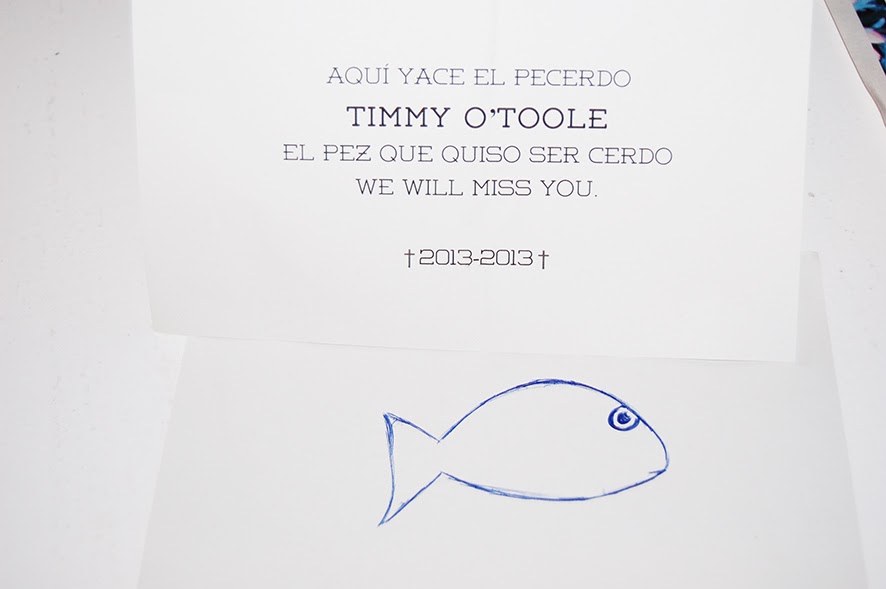 AQUÍ YACE EL PECERDO
TIMMY O'TOOLE
EL PEZ QUE QUISO SER CERDO
WE WILL MISS YOU.
†2013-2013†